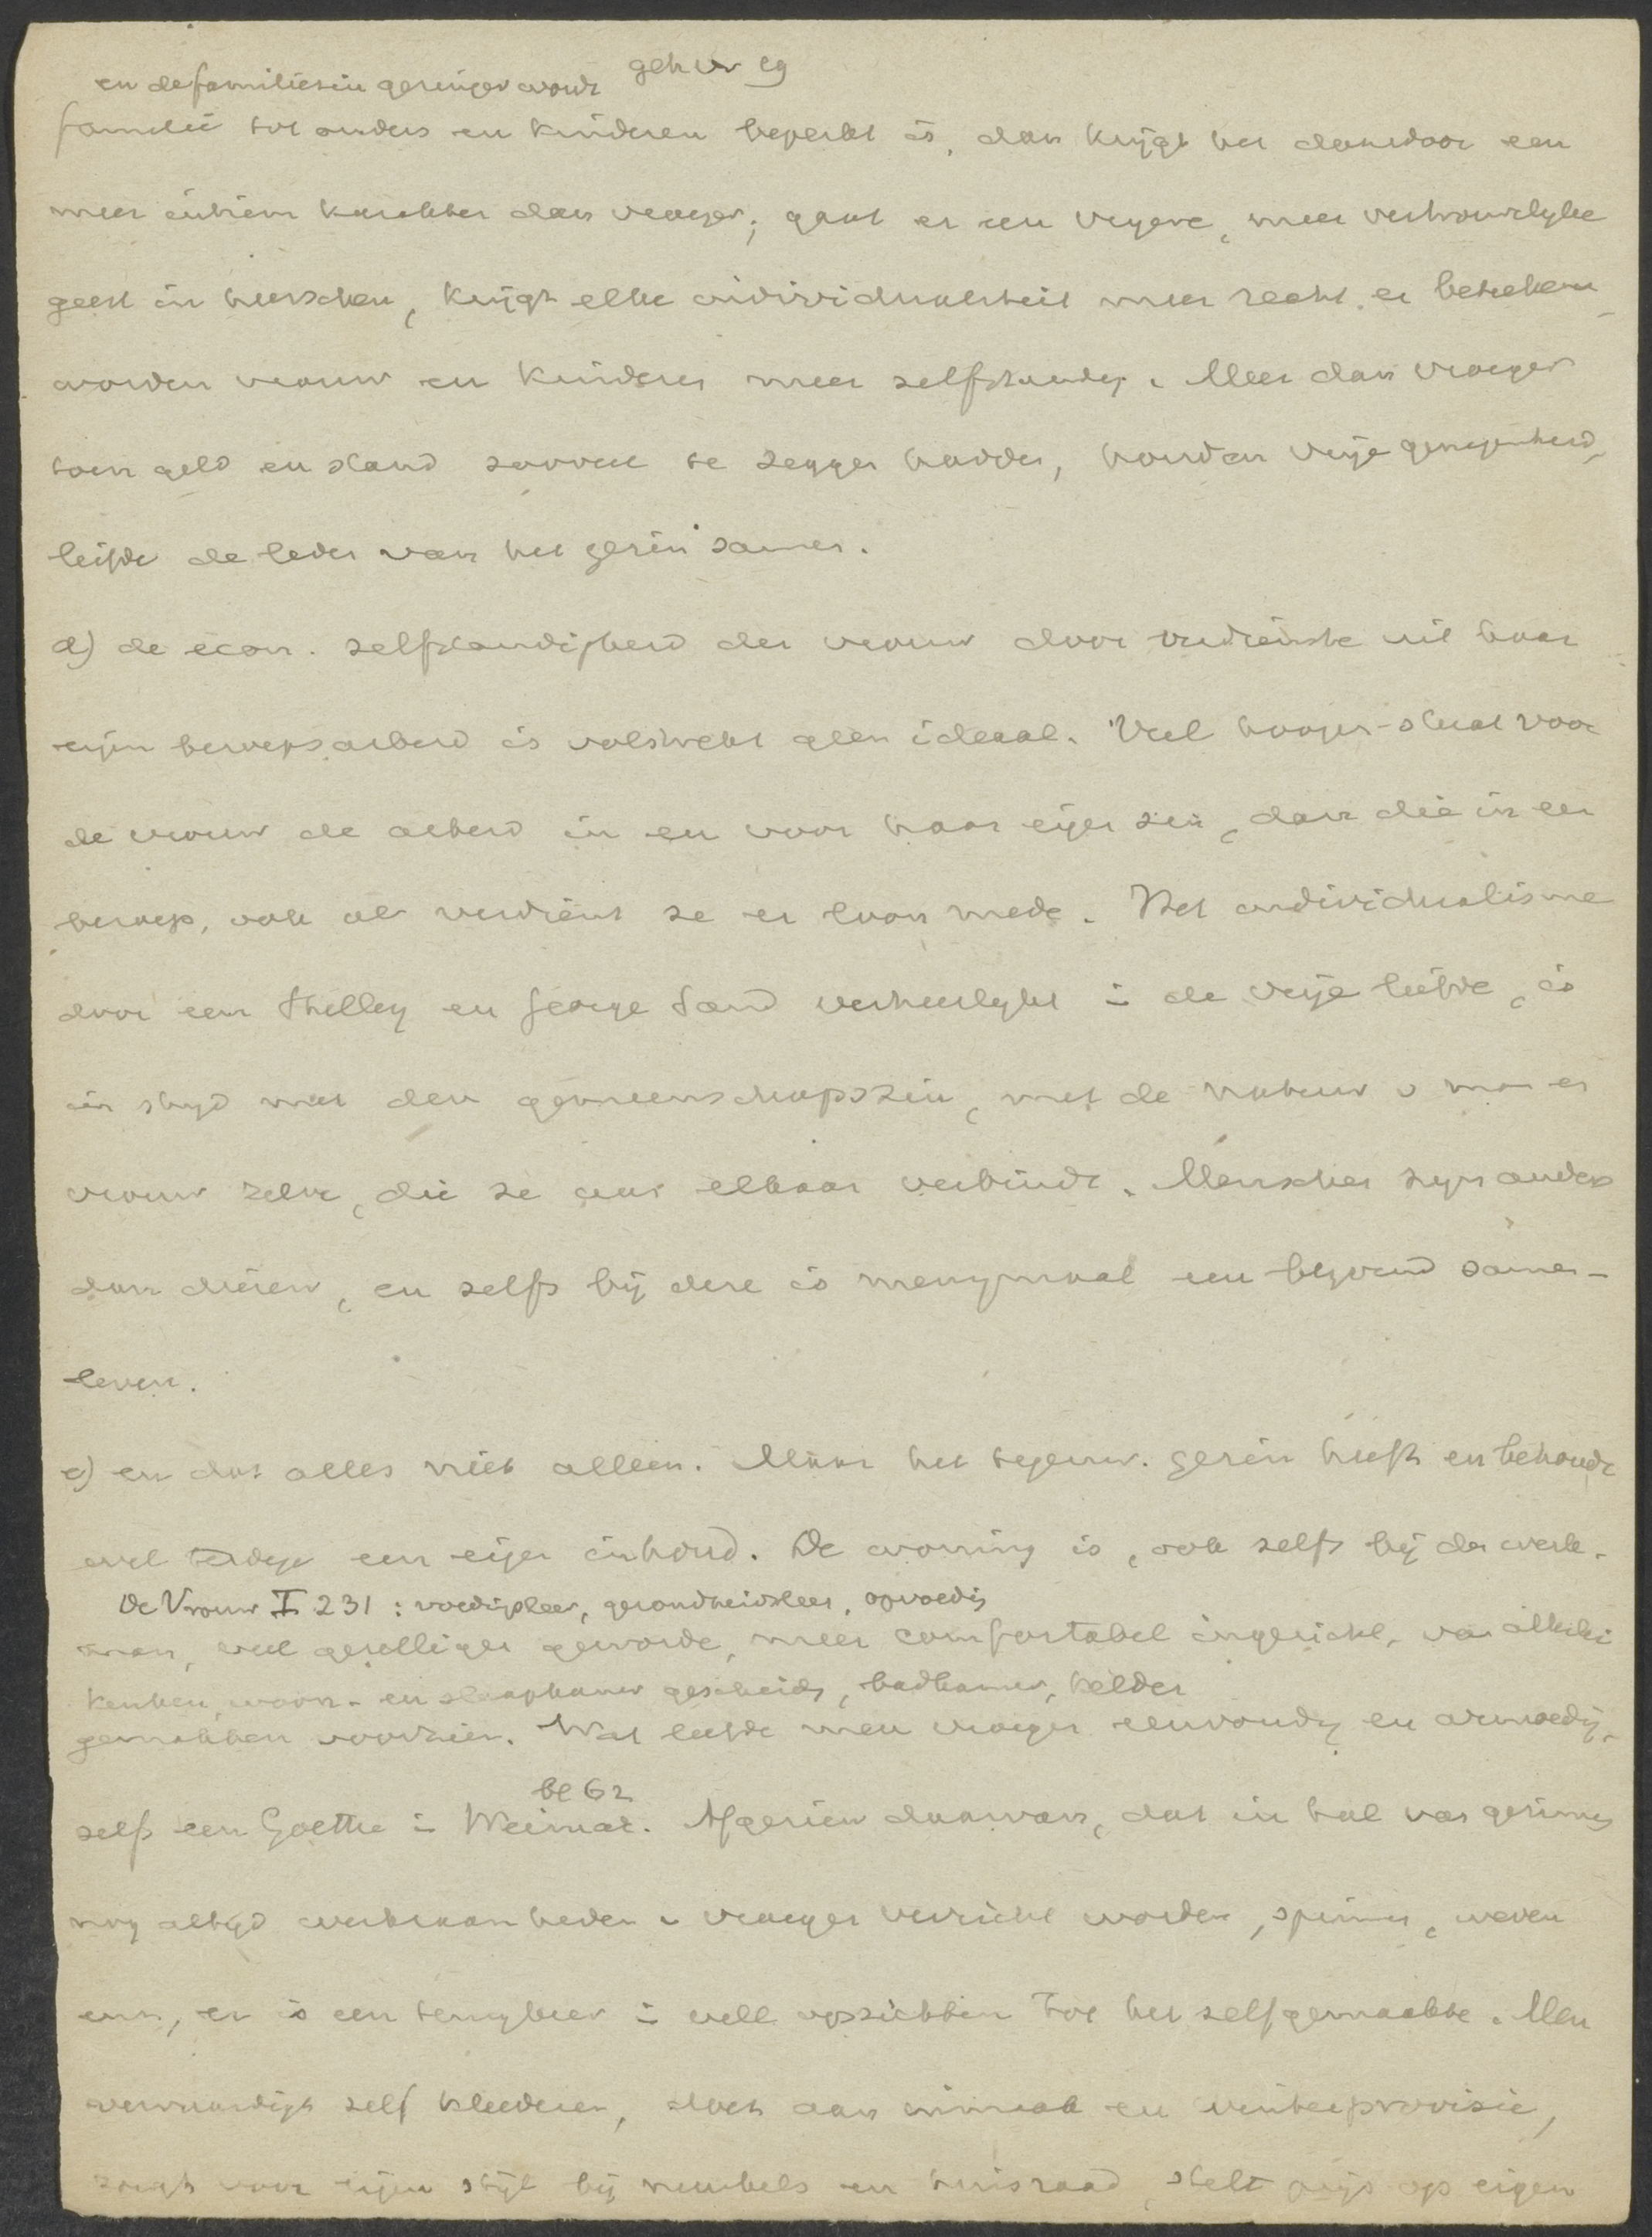 en de familiezin geringer wordt
familie tot ouders en kinderen beperkt is, dan krijgt het daardoor een
meer intiem karakter dan vroeger; gaat er een vrijere, meer vertrouwelyke
geest in heerschen, krijgt elke individualiteit meer recht en beteeken
worden vrouw en kinderen meer zelfstandig. Meer dan vroeger
toen geld en stand zooveel te zeggen hadden, houden vrije genegenheid,
liefde de leden van het gezin samen.
d) de econ. zelfstandigheid der vrouw door verdienste uit haar
eigen beroepsarbeid is volstrekt geen ideaal. Veel hooger staat voor
de vrouw de arbeid in en voor haar eigen gezin, dan die in een
beroep, ook al verdient ze er loon mede. Het individualisme
door een Shelley en George Sand verheerlykt in de vrije liefde, is
in stryd met den gemeenschapszin, met de natuur v man en
vrouw zelve, die ze aan elkaar verbindt. Menschen zyn anders
dan dieren, en zelfs bij deze is menigmaal een blyvend samen-
leven.
e) en dat alles niet alleen. Maar het tegenw. gezin heeft en behoudt
wel terdege een eigen inhoud. De woning is, ook zelfs bij den werk-
De Vrouw I 231: voedingsleer, gezondheidsleer, opvoedig
man, veel gezelliger geworden, meer comfortabel ingericht, van allerlei
keuken, woon- en slaapkamer gescheiden, badkamer, kelder
gemakken voorzien. Wat leefde men vroeger eenvoudig en armoedig,
bl 62
zelfs een Goethe in Weimar. Afgezien daarvan, dat in tal van gezinnen
nog altyd werkzaamheden v vroeger verricht worden, spinnen, weven
enz, er is een terugkeer in vele opzichten tot het zelfgemaakte. Men
vervaardigt zelf kleederen, doet aan inmaak en winterprovisie,
zorgt voor eigen styl bij meubels en huisraad, stelt prijs op eigen